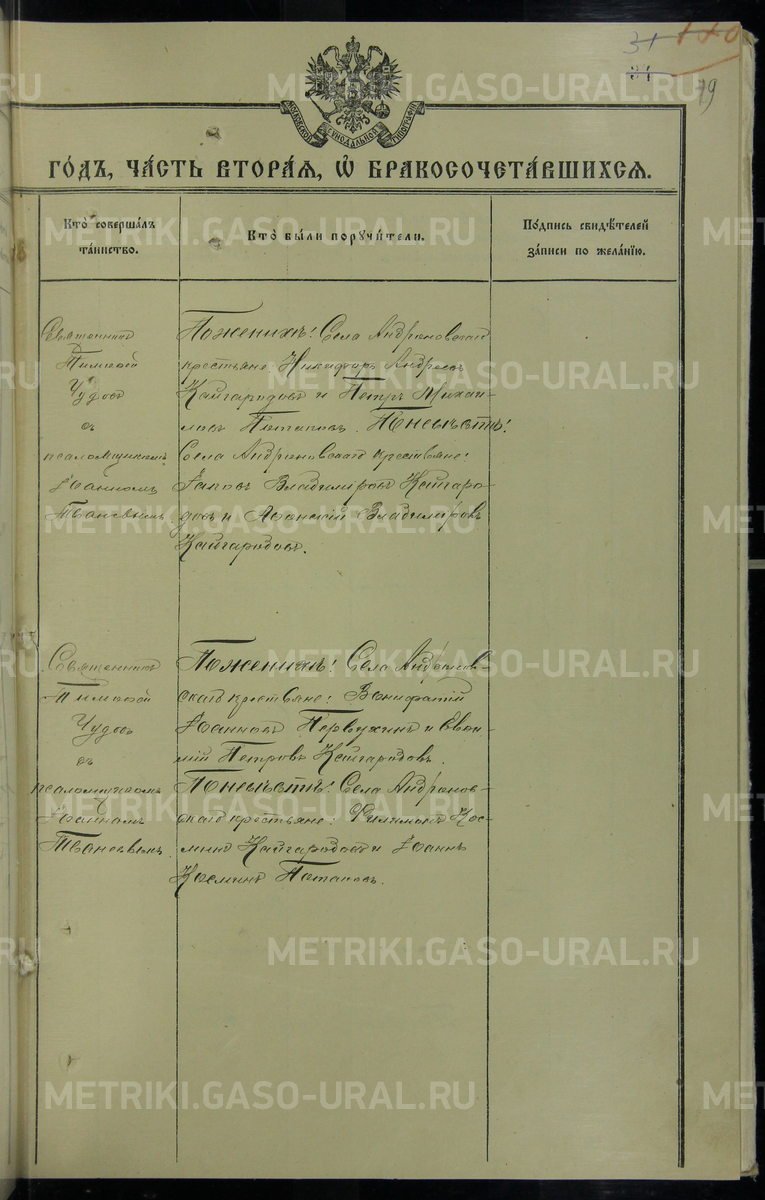 31
110
31
79
МОСКОВСКОЙ СѴНОДАЛЬНОЙ ТИПОГРАФІИ
ГОДЪ, ЧАСТЬ ВТОРАЯ, Ѡ БРАКОСОЧЕТАВШИХСЯ.
Кто совершалъ таинство.
Кто были поручители.
Подпись свидѣтелей записи по желанію.
Священникъ
Тимофей
Чудовъ
съ
псаломщикомъ
Іоанномъ
По женихѣ: Села Андроновскаго
крестьяне: Никифоръ Андреевъ
Кайгородовъ и Петръ Михаи-
ловъ Потаповъ. По невѣстѣ:
Села Андроновскаго крестьяне:
Іаковъ Владиміровъ Кайгоро-
довъ и Аѳанасій Владиміровъ
Кайгородовъ.
Священникъ
Тимофей
Чудовъ
съ
псаломщикомъ
Іоанномъ
По женихѣ: Села Андронов-
скаго крестьяне: Вонифатій
Іоанновъ Первухинъ и Евѳи-
мій Петровъ Кайгородовъ.
По невѣстѣ: Села Андронов-
скаго крестьяне: Филимонъ Кос-
минъ Кайгородовъ и Іоаннъ
Косминъ Потаповъ.
METRIKI.GASO-URAL.RU